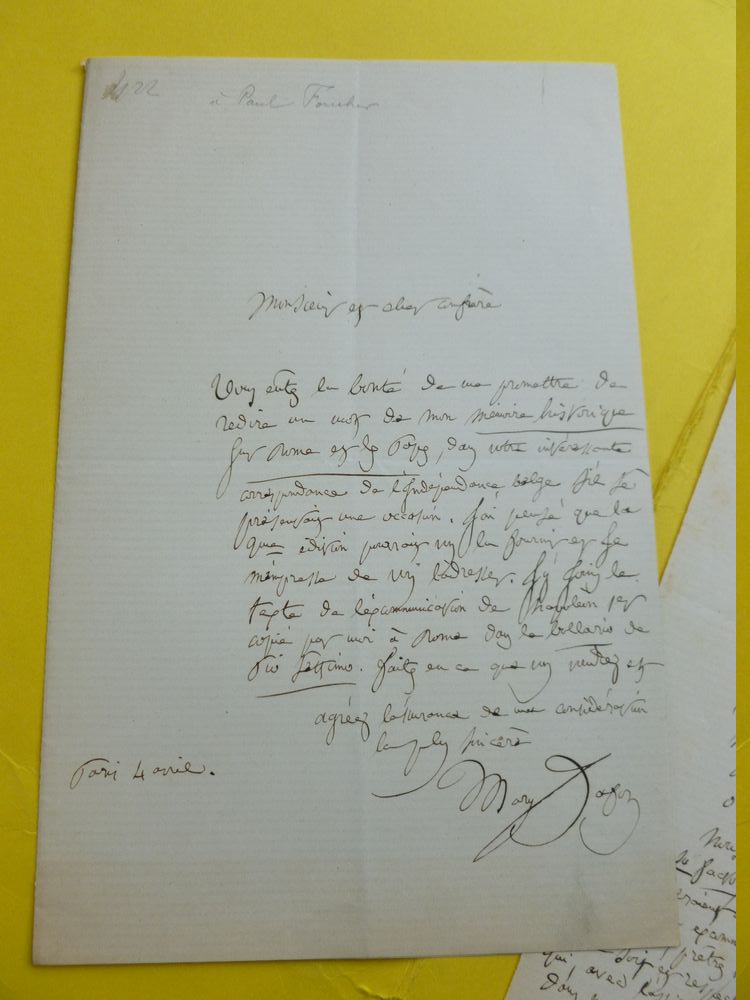 22
à Paul Foucher
Monsieur et cher confrère
Vous eutes la bonté de me promettre de
redire un mot de mon mémoire historique
sur Rome et les Papes, dans votre intéressante
correspondance de l'Indépendance belge s'il se
présentait une occasion. J'ai pensé que la
édition pourrait vous la fournir et je
m'empresse de vous l'adresser. J'y joins le
texte de l'excommunication de Napoléon 1er
copié par moi à Rome dans le bollario de
Pio Settimo. Faites en ce que vous voudrez et
agréez l'assurance de ma considération
la plus sincère
Mary Lafon
Paris 4 avril.